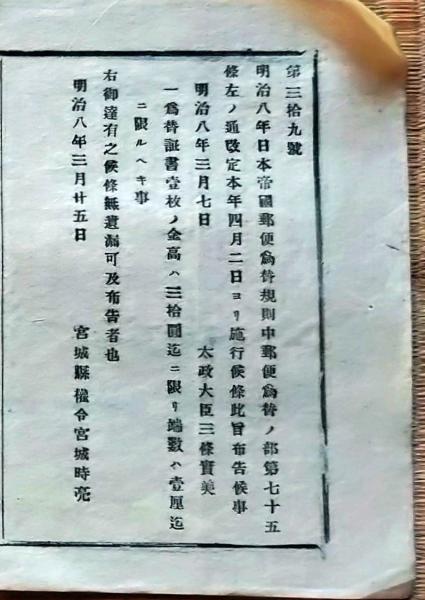 第三拾九號
明治八年日本帝國郵便爲替規則中郵便爲替ノ部第七十五
條左ノ通改定本年四月二日ヨリ施行候條此旨布告候事
明治八年三月七日　太政大臣三條實美
一爲替証書壹枚ノ金高ハ三拾圓迄ニ限リ端數ハ壹厘迄
ニ限ルヘキ事
右御達有之候條無遺漏可及布告者也
明治八年三月廿五日　宮城縣權令宮城時亮